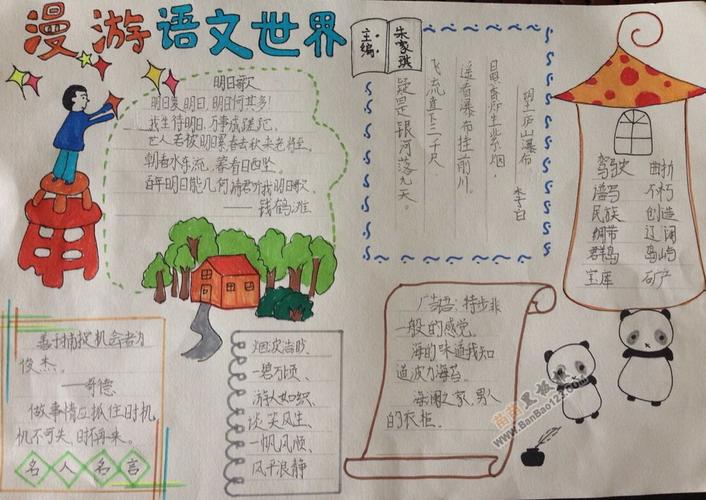 漫游语文世界
主编:
朱家琪
明日歌
明日复明日,明日何其多!
我生待明日,万事成蹉跎。
世人若被明日累,春去秋来老将至。
朝看水东流,暮看日西坠。
百年明日能几何,请君听我明日歌。
——钱鹤滩
望庐山瀑布
李白
日照香炉生紫烟,
遥看瀑布挂前川。
飞流直下三千尺,
疑是银河落九天。
驾驶 曲折
谱写 不朽
民族 创造
绸带 辽阔
群岛 岛屿
宝库 矿产
善于捕捉机会者为
俊杰。
——哥德
做事情应抓住时机
机不可失,时不再来。
名人名言
烟波浩渺、
一碧万顷、
游人如织、
谈笑风生、
一帆风顺、
风平浪静
广告语:特步非
一般的感觉。
海的味道我知
道波力海苔。
海澜之家,男人
的衣柜。
www.BanBao123.com